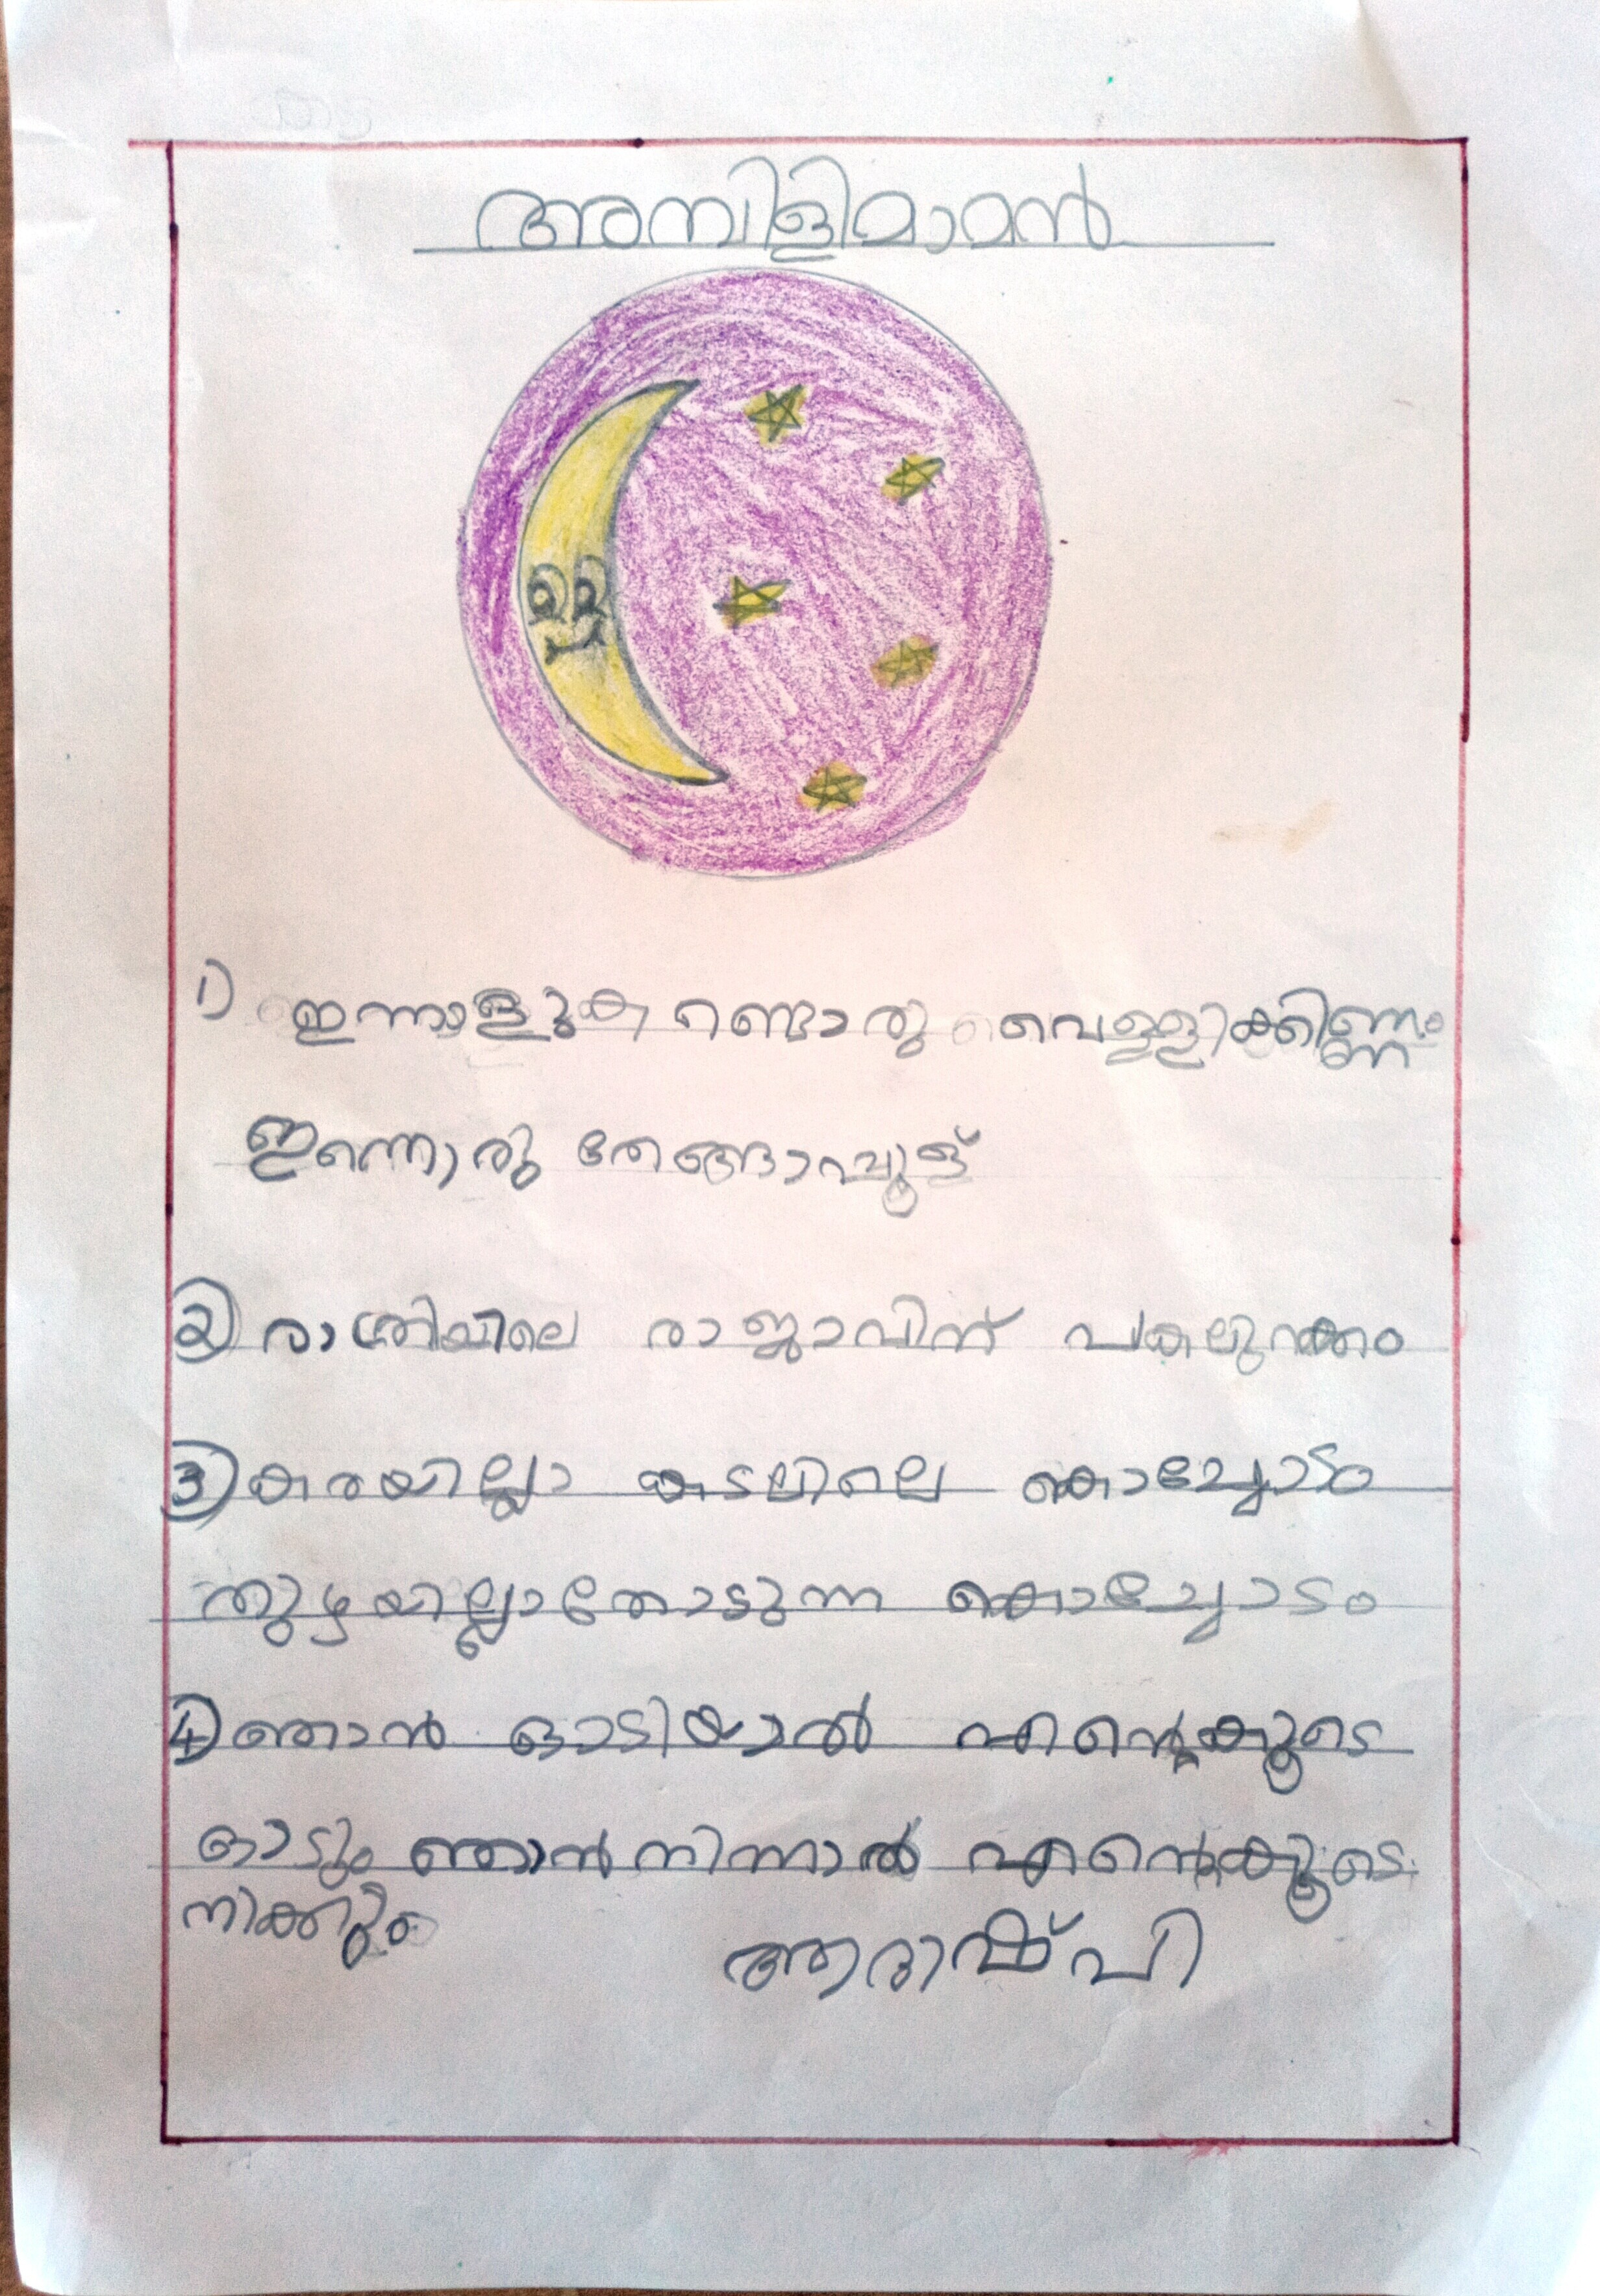 അമ്പിളിമാമൻ
1) ഇന്നാളുക റണ്ടൊരു വെള്ളിക്കിണ്ണം
ഇന്നൊരു തേങ്ങാപ്പൂള്
2) രാത്രിയിലെ രാജാവിന് പകലുറക്കം
3) കരയില്ലാ കടലിലെ കൊച്ചോടം
തുഴയില്ലാതോടുന്ന കൊച്ചോടം
4) ഞാൻ ഓടിയാൽ എന്റെകൂടെ
ഓടും ഞാൻ നിന്നാൽ എന്റെകൂടെ
നിക്കും
ആദർശ് പി